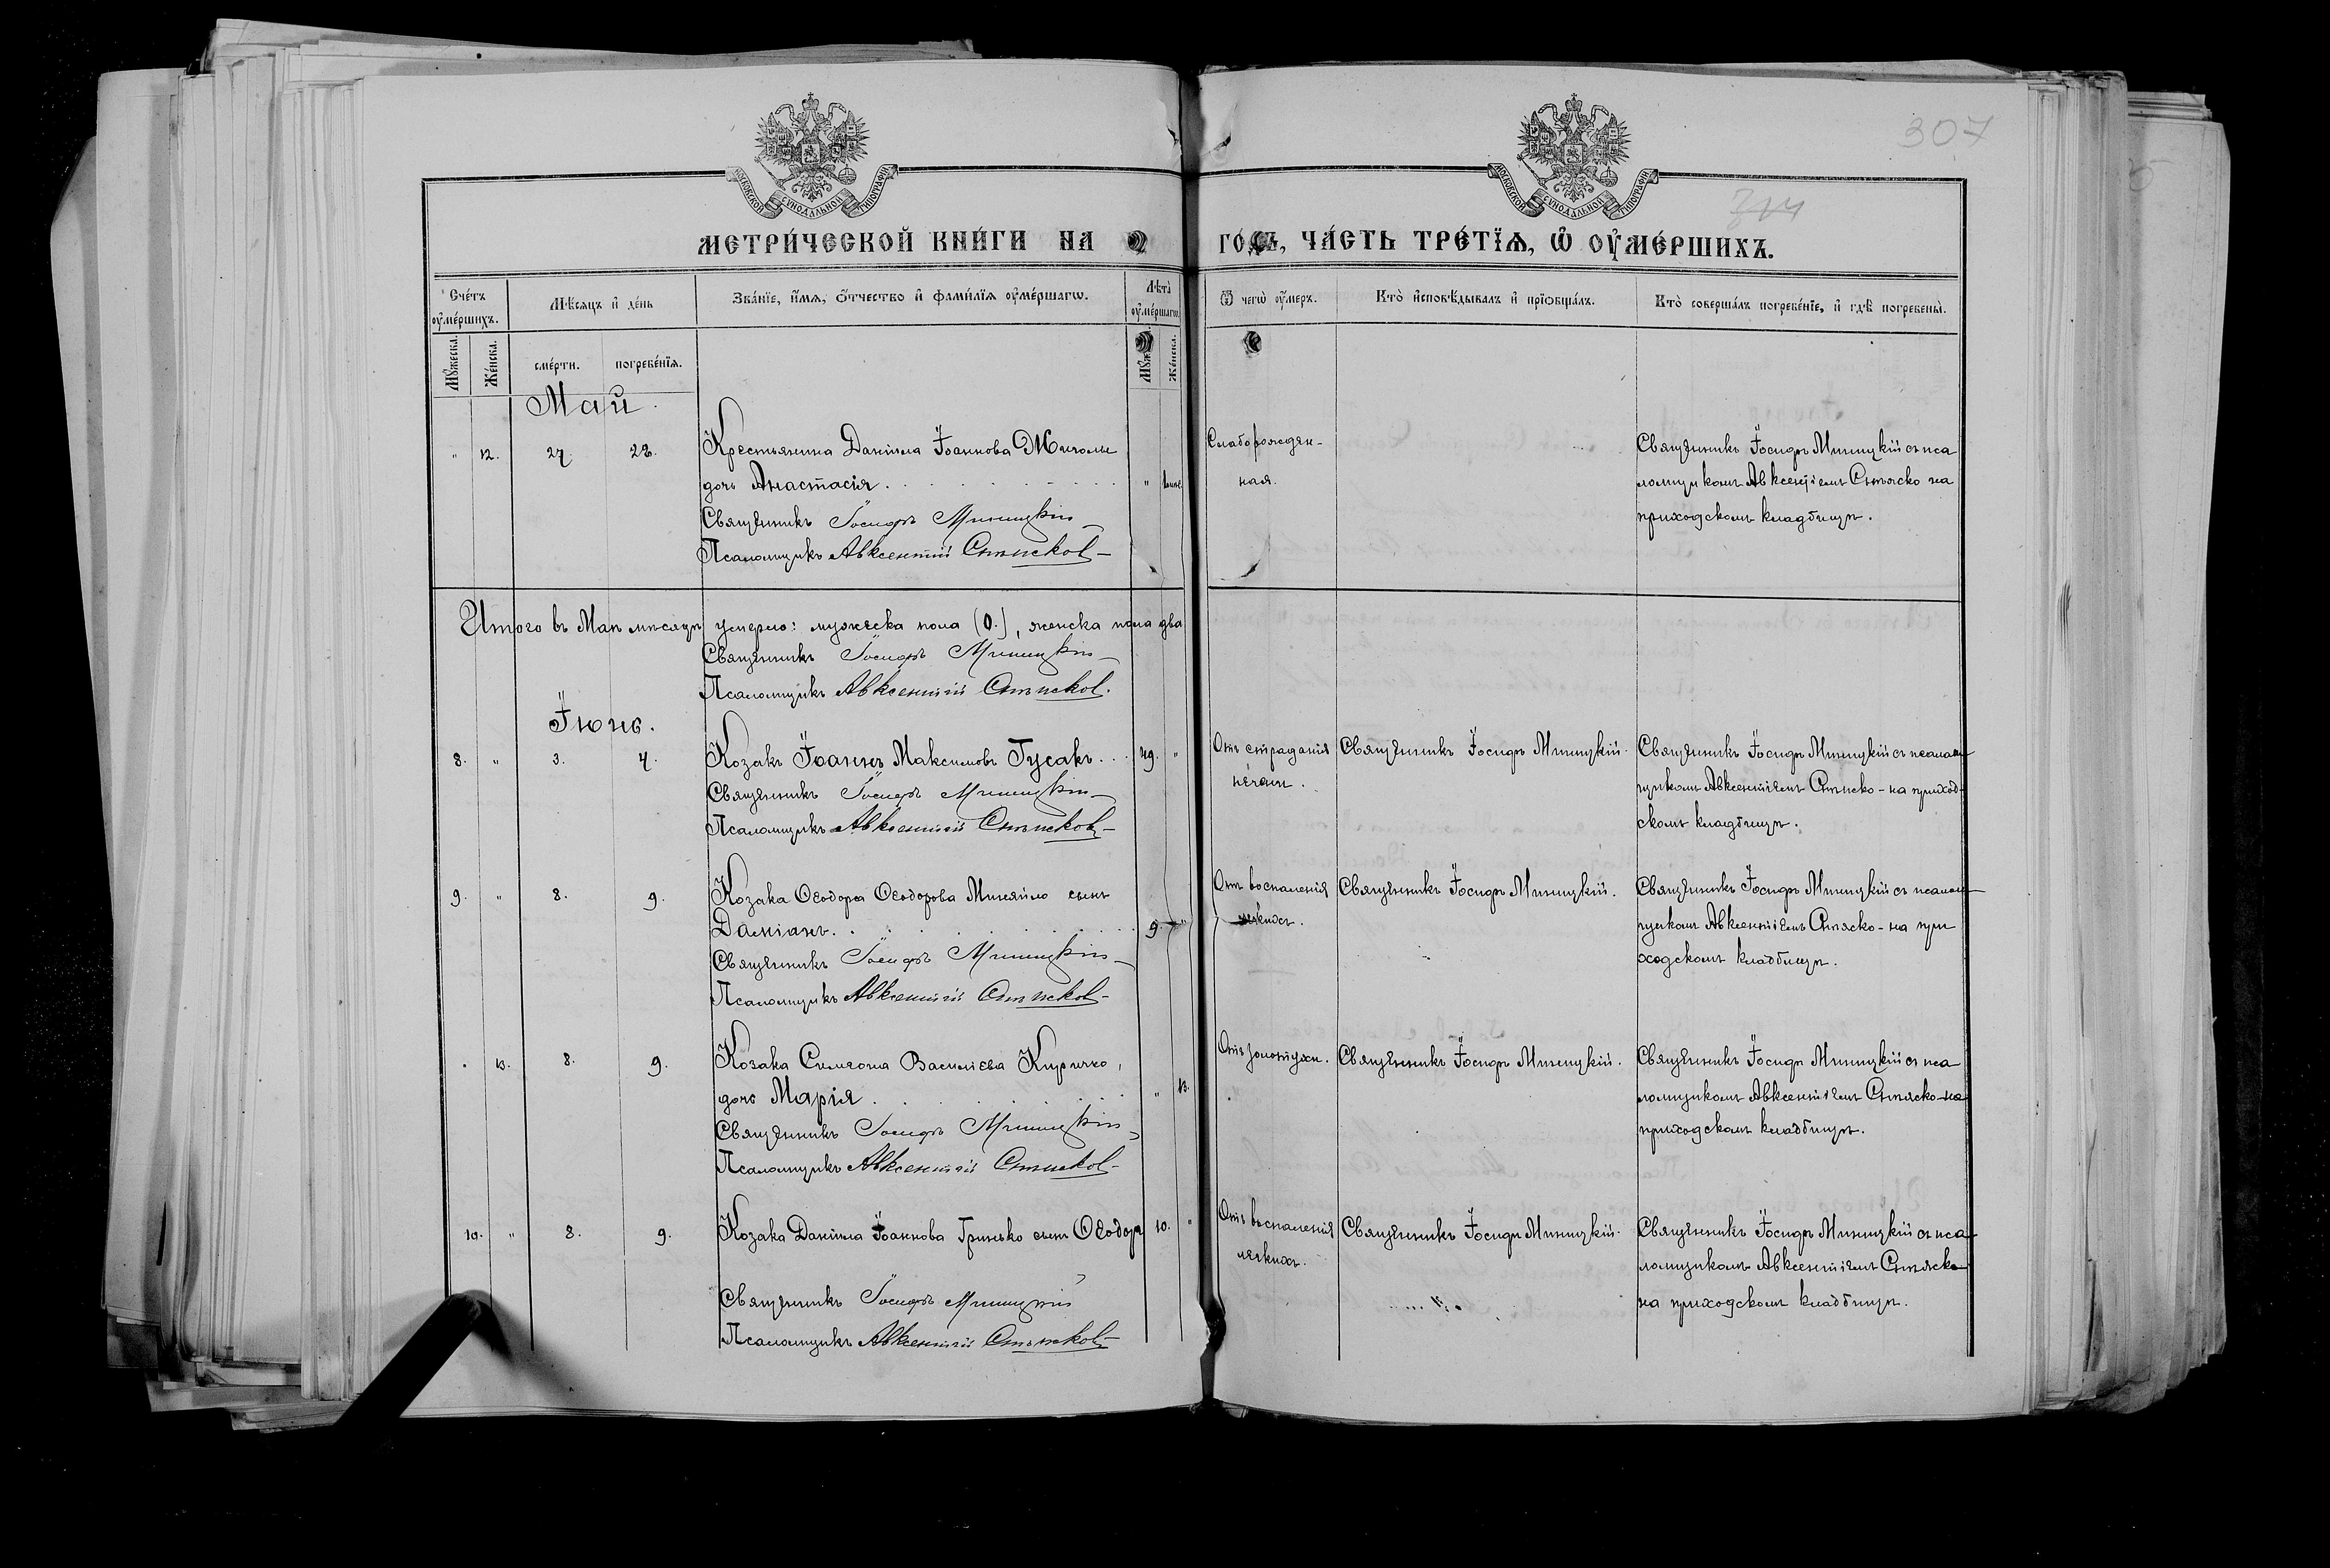 307
314
МОСКОВСКОЙ СѴНОДАЛЬНОЙ ТИПОГРАФІИ
МОСКОВСКОЙ СѴНОДАЛЬНОЙ ТИПОГРАФІИ
МЕТРИ́ЧЕСКОЙ КНИ́ГИ НА ГО́ДЪ, ЧА́СТЬ ТРЕ́ТЇѦ, Ѽ ОУ҆МЕ́РШИХЪ.
Сче́тъ оу҆ме́ршихъ.
Мѣ́сяцъ и҆ де́нь
Зва́нїе, и҆́мѧ, ѻ҆́тчество и҆ фами́лїѧ оу҆ме́ршагѡ.
Лѣта̀ оу҆ме́ршагѡ.
Ѿ чегѡ̀ оу҆́меръ.
Кто̀ и҆сповѣ́дывалъ и҆ прїѡбща́лъ.
Кто̀ соверша́лъ погребе́нїе, и҆ гдѣ̀ погребены̀.
Мꙋ́жеска.
Же́нска.
сме́рти.
погребе́нїѧ.
Же́нска.
Май.
" 12. 27. 28. Крестьянина Даніила Іоаннова
дочь Анастасія . . . "
Священникъ Іосифъ Миницкій
Псаломщикъ Авксентій
Слаборожден-
ная.
Священникъ Іосифъ Миницкій съ пса
ломщикомъ Авксентіемъ Стяско на
приходскомъ кладбищѣ.
Итого въ Маѣ мѣсяцѣ умерло: мужеска пола (0.), женска пола два
Священникъ Іосифъ Миницкій
Псаломщикъ Авксентій
Іюнь.
8. " 3. 4. Козакъ Іоаннъ Максимовъ Гусакъ . . . 49. "
Священникъ Іосифъ Миницкій
Псаломщикъ Авксентій
Отъ страданія
печени.
Священникъ Іосифъ Миницкій.
Священникъ Іосифъ Миницкій съ псалом
щикомъ Авксентіемъ Стяско - на приход-
скомъ кладбищѣ.
9. " 8. 9. Козака Ѳеодора Ѳеодорова Миняйло сынъ
Даміанъ. . . . 9. "
Священникъ Іосифъ Миницкій
Псаломщикъ Авксентій
Отъ воспаленія
легкихъ.
Священникъ Іосифъ Миницкій.
Священникъ Іосифъ Миницкій съ псалом
щикомъ Авксентіемъ Стяско - на при
ходскомъ кладбищѣ.
" 13. 8. 9. Козака Симеона Василіева Киричко,
дочь Марія . . . " 13.
Священникъ Іосифъ Миницкій
Псаломщикъ Авксентій
Отъ золотухи.
Священникъ Іосифъ Миницкій.
Священникъ Іосифъ Миницкій съ пса
ломщикомъ Авксентіемъ Стяско - на
приходскомъ кладбищѣ.
10. " 8. 9. Козака Даніила Іоаннова Гринько сынъ Ѳеодоръ 10. "
Священникъ Іосифъ Миницкій
Псаломщикъ Авксентій
Отъ воспаленія
легкихъ.
Священникъ Іосифъ Миницкій.
Священникъ Іосифъ Миницкій съ пса
ломщикомъ Авксентіемъ Стяско
на приходскомъ кладбищѣ.